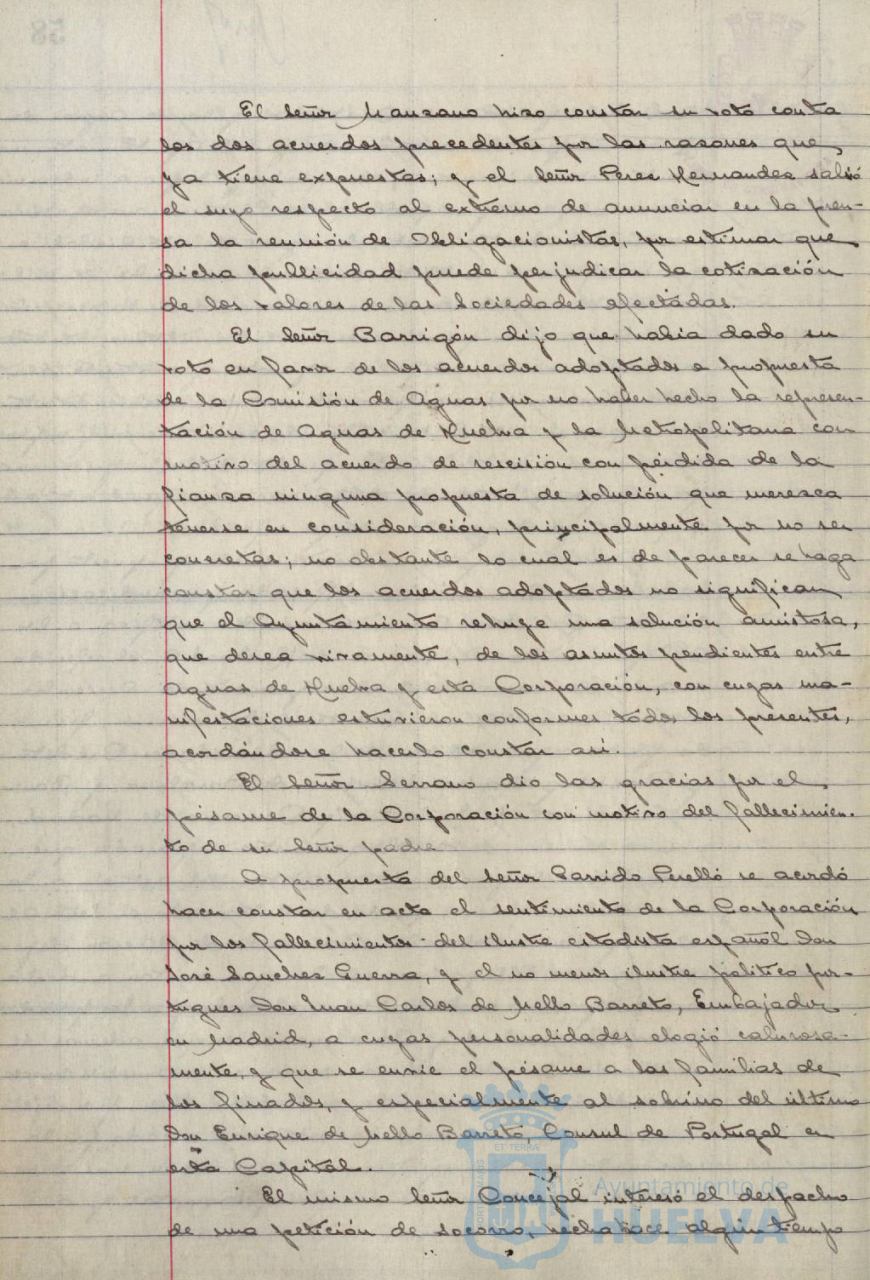 El Señor Manzano hizo constar su voto contra
los dos acuerdos precedentes por las razones que
ya tiene expuestas; y el Señor Perez Hernandez salvó
el suyo respecto al extremo de anunciar en la pren-
sa la reunión de Obligacionistas, por estimar que
dicha publicidad puede perjudicar la cotización
de los valores de las Sociedades afectadas.
El Señor Barrigón dijo que habia dado su
voto en favor de los acuerdos adoptados a propuesta
de la Comisión de Aguas por no haber hecho la represen-
tación de Aguas de Huelva y la Metropolitana con
motivo del acuerdo de rescisión con pérdida de la
fianza ninguna propuesta de solución que merezca
tenerse en consideración, principalmente por no ser
concretas; no obstante lo cual es de parecer se haga
constar que los acuerdos adoptados no significan
que el Ayuntamiento rehuye una solución amistosa,
que desea vivamente, de los asuntos pendientes entre
Aguas de Huelva y esta Corporación, con cuyas ma-
nifestaciones estuvieron conformes todos los presentes,
acordándose hacerlo constar asi.
El Señor Serrano dio las gracias por el
pésame de la Corporación con motivo del fallecimien-
to de su Señor padre
A propuesta del Señor Garrido Perelló se acordó
hacer constar en acta el sentimiento de la Corporación
por los fallecimientos del ilustre estadista español Don
José Sanchez Guerra, y el no menos ilustre politico por-
tugues Don Juan Carlos de Mello Barreto, Embajador
en Madrid, a cuyas personalidades elogió calurosa-
mente, y que se envie el pésame a las familias de
los finados, y especialmente al sobrino del último
Don Enrique de Mello Barreto, Consul de Portugal en
esta Capital.
El mismo Señor Concejal interesó el despacho
de una petición de socorro, hecha hace algún tiempo
Ayuntamiento de
HUELVA